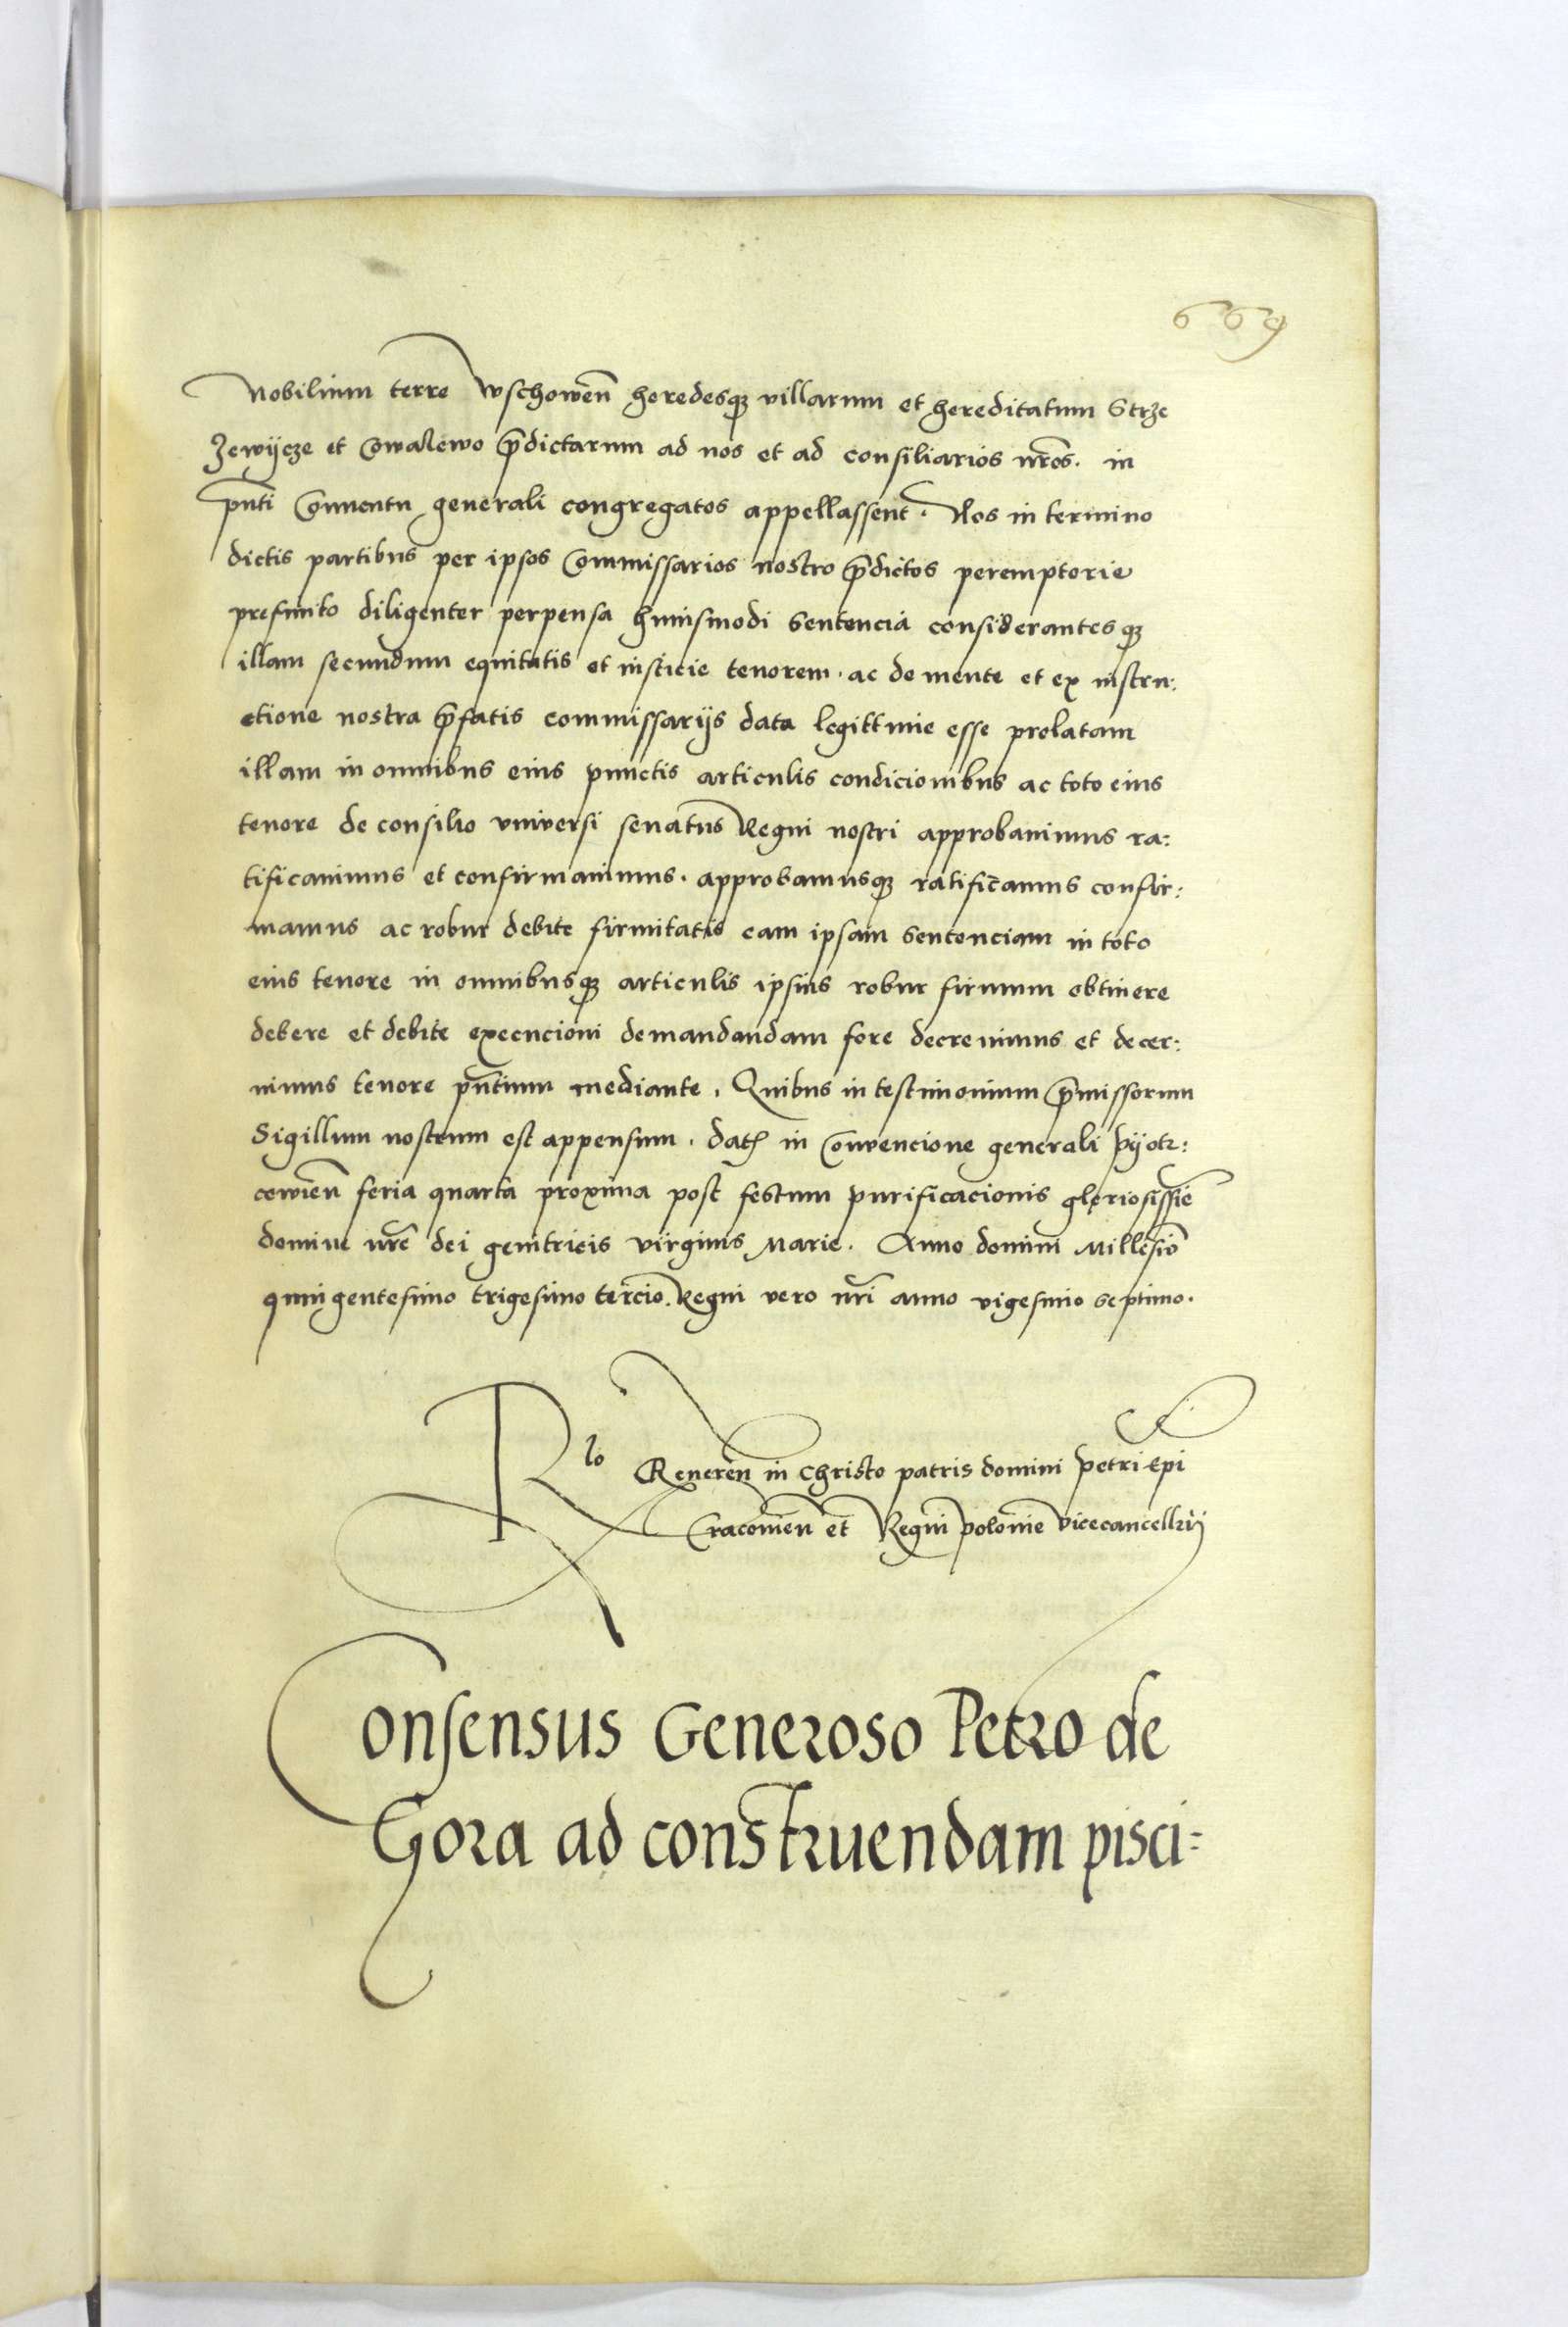 669
Nobilium terre Wschowen̄ heredesqꝫ villarum et hereditatum Strze
Zewijcze et Cowalewo p̄dictarum ad nos et ad consiliarios nr̄os. in
pn̄ti Conuentu generali congregatos appellassent. Nos in termino
dictis partibus per ipsos Commissarios nostro p̄dictos peremptorie
prefinito diligenter perpensa huiusmodi Sentencia considerantesqꝫ
illam secundum equitatis et iusticie tenorem. ac de mente et ex instru:
ctione nostra p̄fatis commissarijs data legittime esse prolatam
illam in omnibus eius punctis articulis condicionibus ac toto eius
tenore de consilio vniversi senatus Regni nostri approbauimus ra:
tificauimus et confirmauimus. approbamusqꝫ ratificamus confir:
mamus ac robur debite firmitatis eam ipsam Sentenciam in toto
eius tenore in omnibusqꝫ articulis ipsius robur firmum obtinere
debere et debite execucioni demandandam fore decreuimus et decer:
nimus tenore pn̄tium mediante. Quibus in testimonium p̄missorum
Sigillum nostrum est appensum. Datꝭ in Convencione generali Pijotr:
cowien̄ feria quarta proxima post festum purificacionis gloriosissīe
domine nr̄e dei genitricis virginis Marie. Anno domini Millesīo
quingentesimo trigesimo tercio. Regni vero nr̄i anno vigesimo septimo.
Rlo Reueren̄ in Christo patris domini Petri Ep̄i
Cracouien̄ et Regni polonie vicecancellr̄ij
Consensus Generoso Petro de
Gora ad construendam pisci=